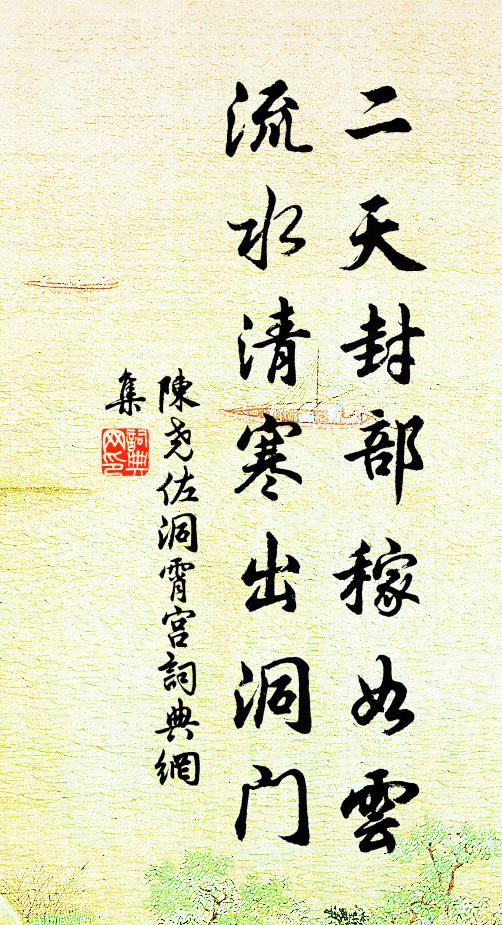 二天封部稼如雲
流水清寒出洞門
陳堯佐洞霄宮詞典網
集
詞典網印